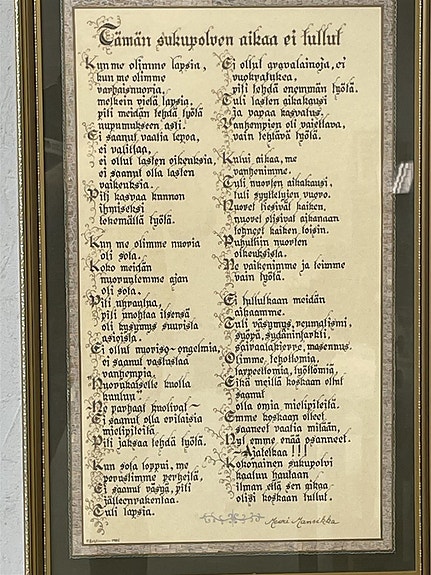 Tämän sukupolven aikaa ei tullut
Kun me olimme lapsia,
kun me olimme
varhaisnuoria,
melkein vielä lapsia,
piti meidän tehdä työtä
uupumukseen asti.
Ei saanut vaatia lepoa,
ei valittaa,
ei ollut lasten oikeuksia,
ei saanut olla lasten
vaikeuksia.
Piti kasvaa kunnon
ihmiseksi
tekemällä työtä.
Kun me olimme nuoria
oli sota.
Koko meidän
nuoruutemme ajan
oli sota.
Piti uhrautua,
piti unohtaa itsensä
oli kysymys suurista
asioista.
Ei ollut nuoriso-ongelmia,
Ei saanut vastustaa
vanhempia,
Nuorukaiselle kuolla
kuuluu.
~Ne parhaat kuolivat~
Ei saanut olla erilaisia
mielipiteitä.
Piti jaksaa tehdä työtä.
Kun sota loppui, me
perustimme perheitä,
Ei saanut väsyä, piti
jälleenrakentaa.
Tuli lapsia.
Ei ollut apurahainoja, ei
vuokratukea,
piti tehdä enemmän työtä.
Tuli lasten aikakausi
ja vapaa kasvatus.
Vanhempien oli vaiettava,
vain tehtävä työtä.
Kului aikaa, me
vanhenimme.
Tuli nuorten aikakausi,
tuli syyttelyjen vuoro.
Nuoret tiesivät kaiken,
nuoret olisivat aikanaan
tehneet kaiken toisin.
Puhuttiin nuorten
oikeuksista.
Me vaikenimme ja teimme
vain työtä.
Ei tullutkaan meidän
aikaamme.
Tuli väsymys, reumatismi,
syöpä, sydäninfarkti,
sairaalakierre, masennus.
Olimme, tehottomia,
tarpeettomia, työttömiä,
Eikä meillä koskaan ollut
saanut
olla omia mielipiteitä.
Emme koskaan olleet
saaneet vaatia mitään,
Nyt emme enää osanneet.
~Ajatelkaa !!!
Kokonainen sukupolvi
kaatuu hautaan
ilman että sen aika
olisi koskaan tullut.